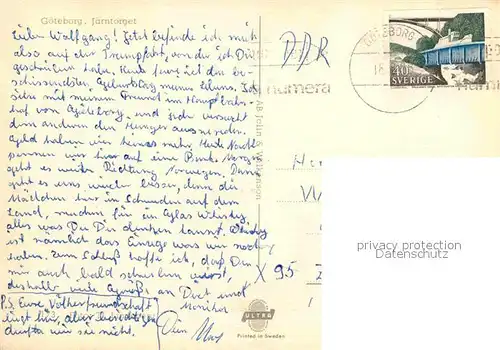 Göteborg, Järntorget
Lieber Wolfgang! Jetzt befinde ich mich
also auf der Trampfahrt, von der ich Dir
geschrieben habe. Heute feiere ich den be-
schissendsten Geburtstag meines Lebens. Ich
sitze mit meinem Freund im Hauptbahn-
hof von Göteborg und jeder versucht
dem anderen den Hunger auszureden.
Geld haben wir keines mehr. Heute Nacht
pennen wir hier auf einer Bank. Morgen
geht es weiter Richtung Norwegen. Dann
geht es uns wieder besser, denn die
Mädchen hier in Schweden auf dem
Land, machen für ein Glas Whisky
alles was Du Dir denken kannst. Whisky
ist nämlich das Einzige was wir noch
haben. Zum Schluß hoffe ich, daß Du
mir auch bald schreiben wirst,
deshalb viele Grüße an Dich und
Monika
P.S. Eure Völkerfreundschaft
liegt hier, aber besichtigen
durften wir sie nicht.
Dein
DDR
GÖTEBORG
numera
40
SVERIGE
AB Jelin & Wilkenson
X 95
privacy protection
watermark
ULTRA
Printed in Sweden